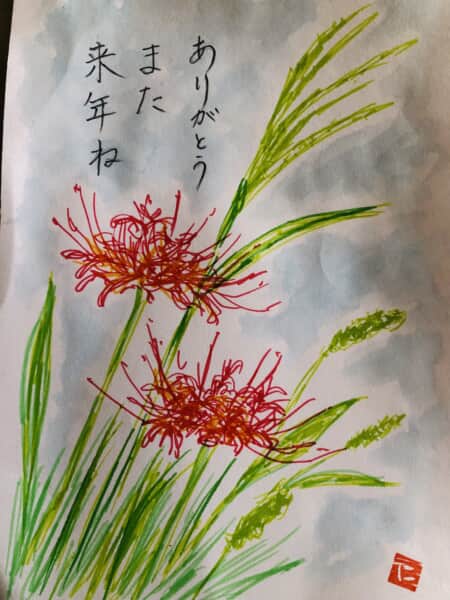 ありがとう
また
来年ね